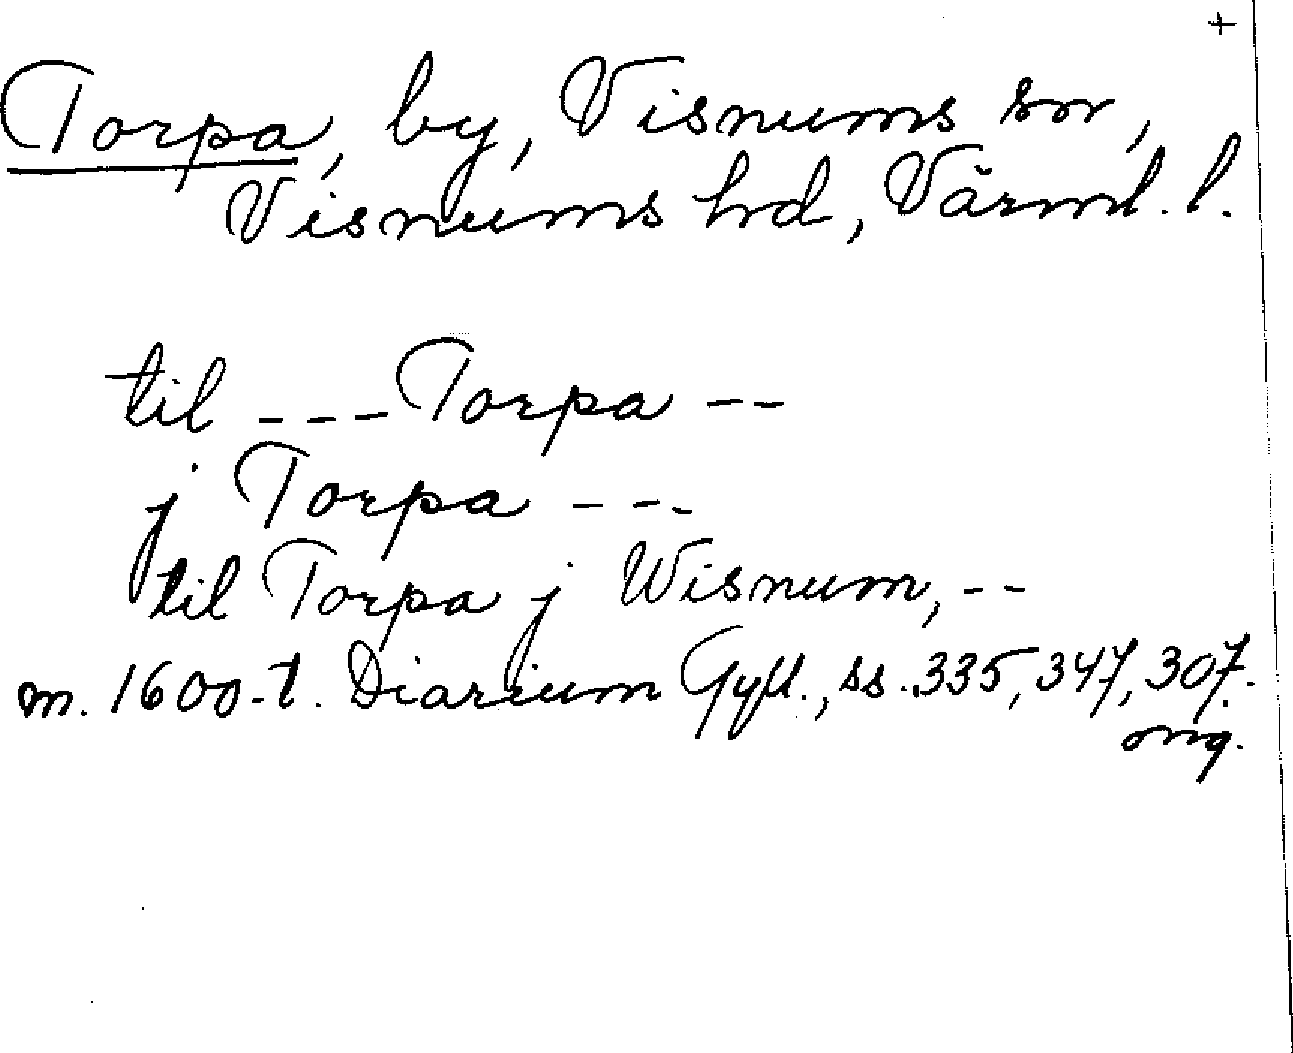 +
Torpa, by, Visnums sn,
Visnums hd, Värml. l.
til --- Torpa --
j Torpa ---
til Torpa j Wisnum, --
m. 1600-t. Diarium Gyll., ss. 335, 347, 307.
orig.